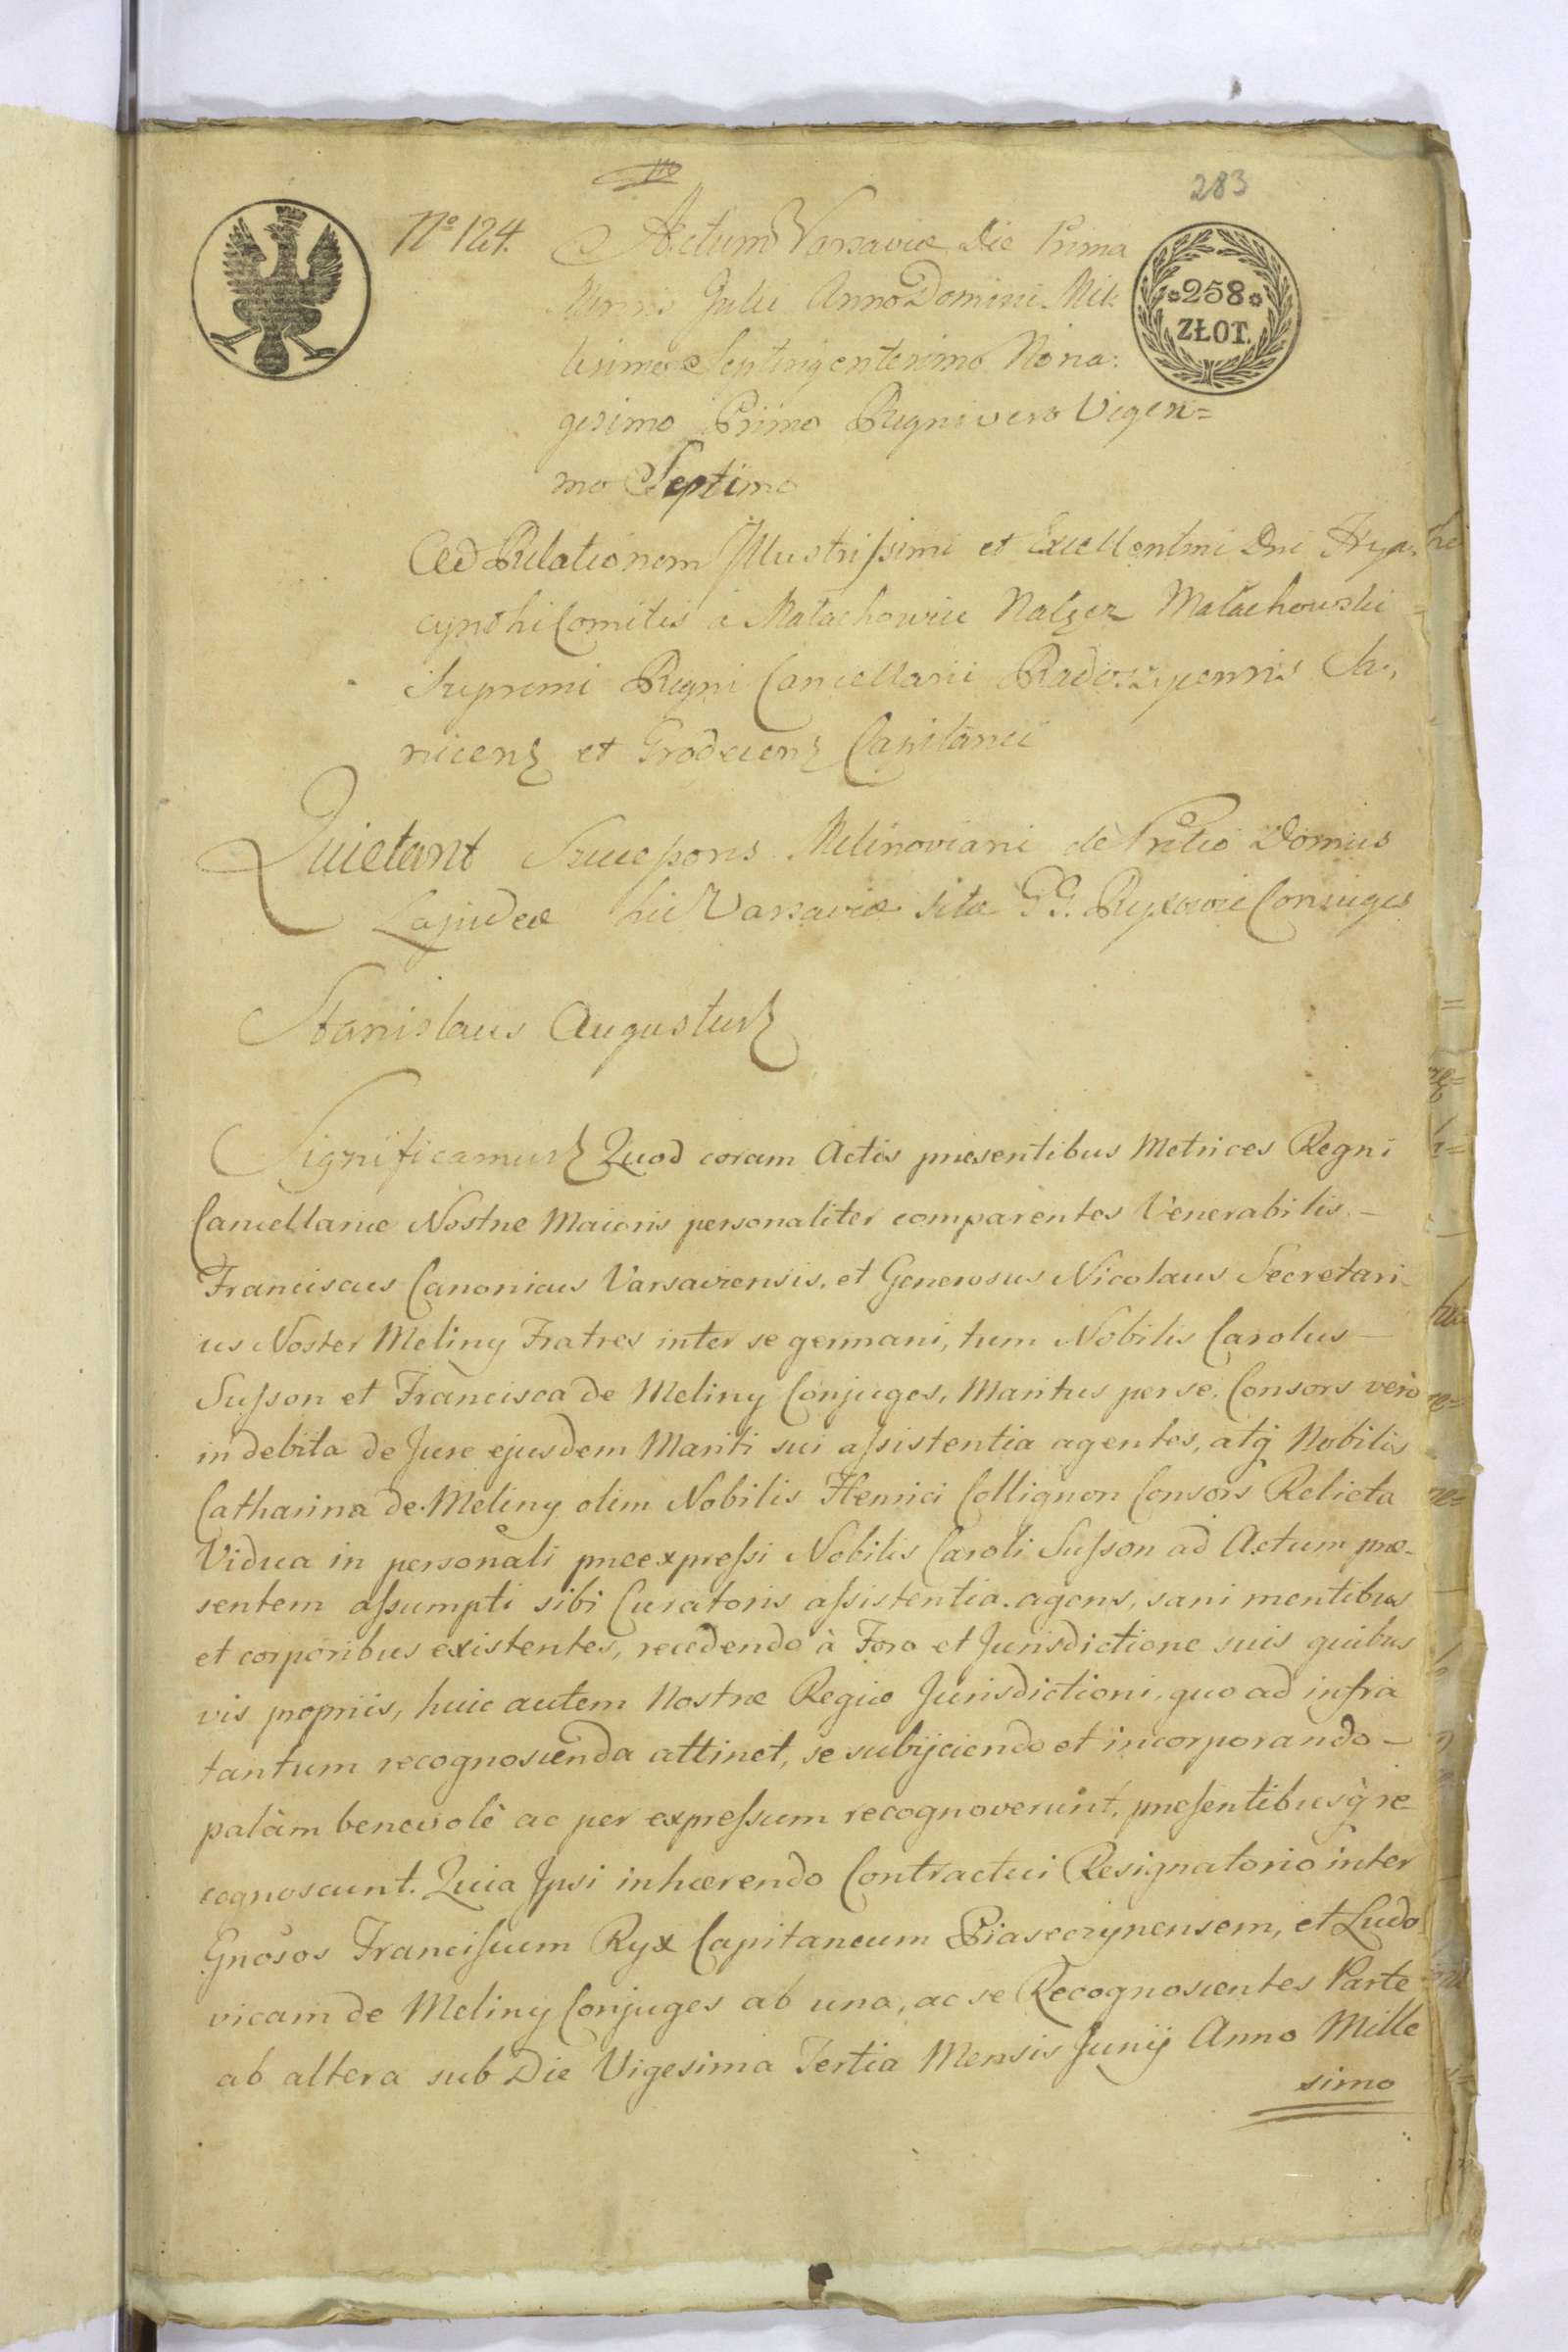 283
Nº 124.
Actum Varsaviæ Die Prima
Mensis Julii Anno Domini Mil:
lesimo Septingentesimo Nona:
gesimo Primo Regni vero Vigesi=
mo Septimo
*258*
ZŁOT.
Ad Relationem Illustrissimi et Excellentmi Dni Hya.
cynthi Comitis à Małachowice Nałęcz Małachowski
Supremi Regni Cancellarii Radoszycensis Sa.
nicens et Grodecens Capitanei
Quietant Melinoviani de Pretio Domus
Lapideæ hic Varsaviæ sitæ GG. Ryxowie Conjuges
Stanislaus Augustus
Significamus Quod coram Actis præsentibus Metrices Regni
Cancellariæ Nostræ Maioris personaliter comparentes Venerabilis –
Franciscus Canonicus Varsaviensis, et Generosus Nicolaus Secretari
us Noster Meliny Fratres inter se germani, tum Nobilis Carolus –
Susson et Francisca de Meliny Conjuges, Maritus per se, Consors verò
in debita de Jure ejusdem Mariti sui assistentia agentes, atq̄ Nobilis
Catharina de Meliny olim Nobilis Henrici Collignon Consors Relicta
Vidua in personali præexpressi Nobilis Caroli Susson ad Actum præ-
sentem assumpti sibi Curatoris assistentia agens, sani mentibus
et corporibus existentes, recedendo à Foro et Jurisdictione suis quibus
vis propriis, huic autem Nostræ Regiæ Jurisdictioni, quo ad infra
tantum recognoscenda attinet, se subijciendo et incorporando –
palàm benevolè ac per expressum recognoverunt, præsentibusq̀ re
cognoscunt. Quia Ipsi inhærendo Contractui Resignatorio inter
Gnosos Franciscum Ryx Capitaneum Piaseczynensem, et Ludo
vicam de Meliny Conjuges ab una, ac se Recognoscentes Parte
ab altera sub Die Vigesima Tertia Mensis Junij Anno Mille
simo